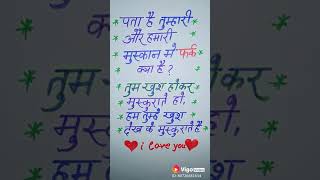 पता है तुम्हारी
और हमारी
मुस्कान मे फर्क
क्या है ?
तुम खुश होकर
मुस्कुराते हो,
हम तुम्हे खुश
देख के मुस्कुराते है
i Love you
Vigo VIDEO